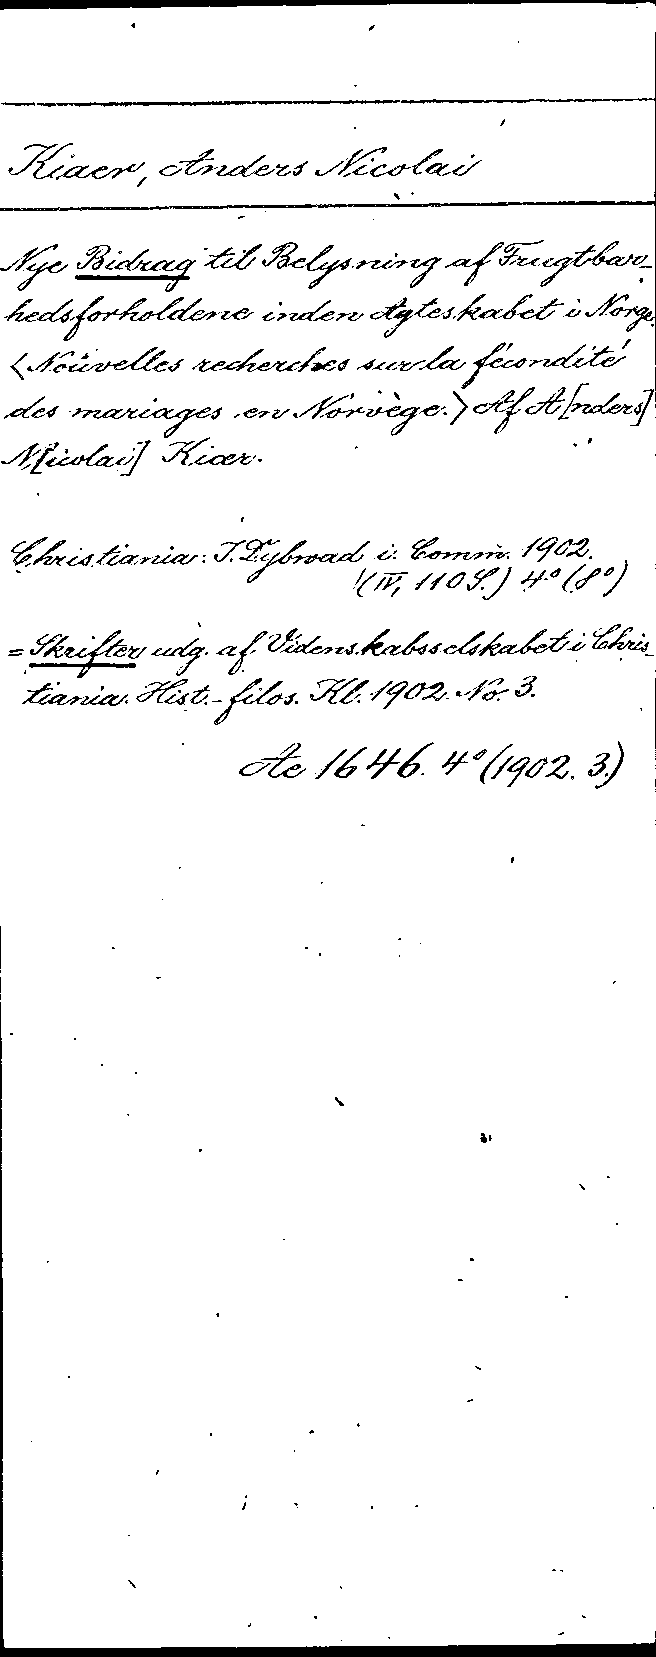 Kiaer, Anders Nicolai
Nye Bidrag til Belysning af Frugtbar-
hedsforholdene inden Ægteskabet i Norge.
<Nouvelles recherches sur la fécondité
des mariages en Norvège.> Af A[nders]
N[icolai] Kiær.
Christiania: J. Dybwad i. Comm. 1902.
(IV, 110 S.) 4° (8°)
= Skrifter udg. af Videnskabsselskabet i Chris-
tiania. Hist.-filos. Kl. 1902. No. 3.
Ac 1646. 4° (1902. 3.)